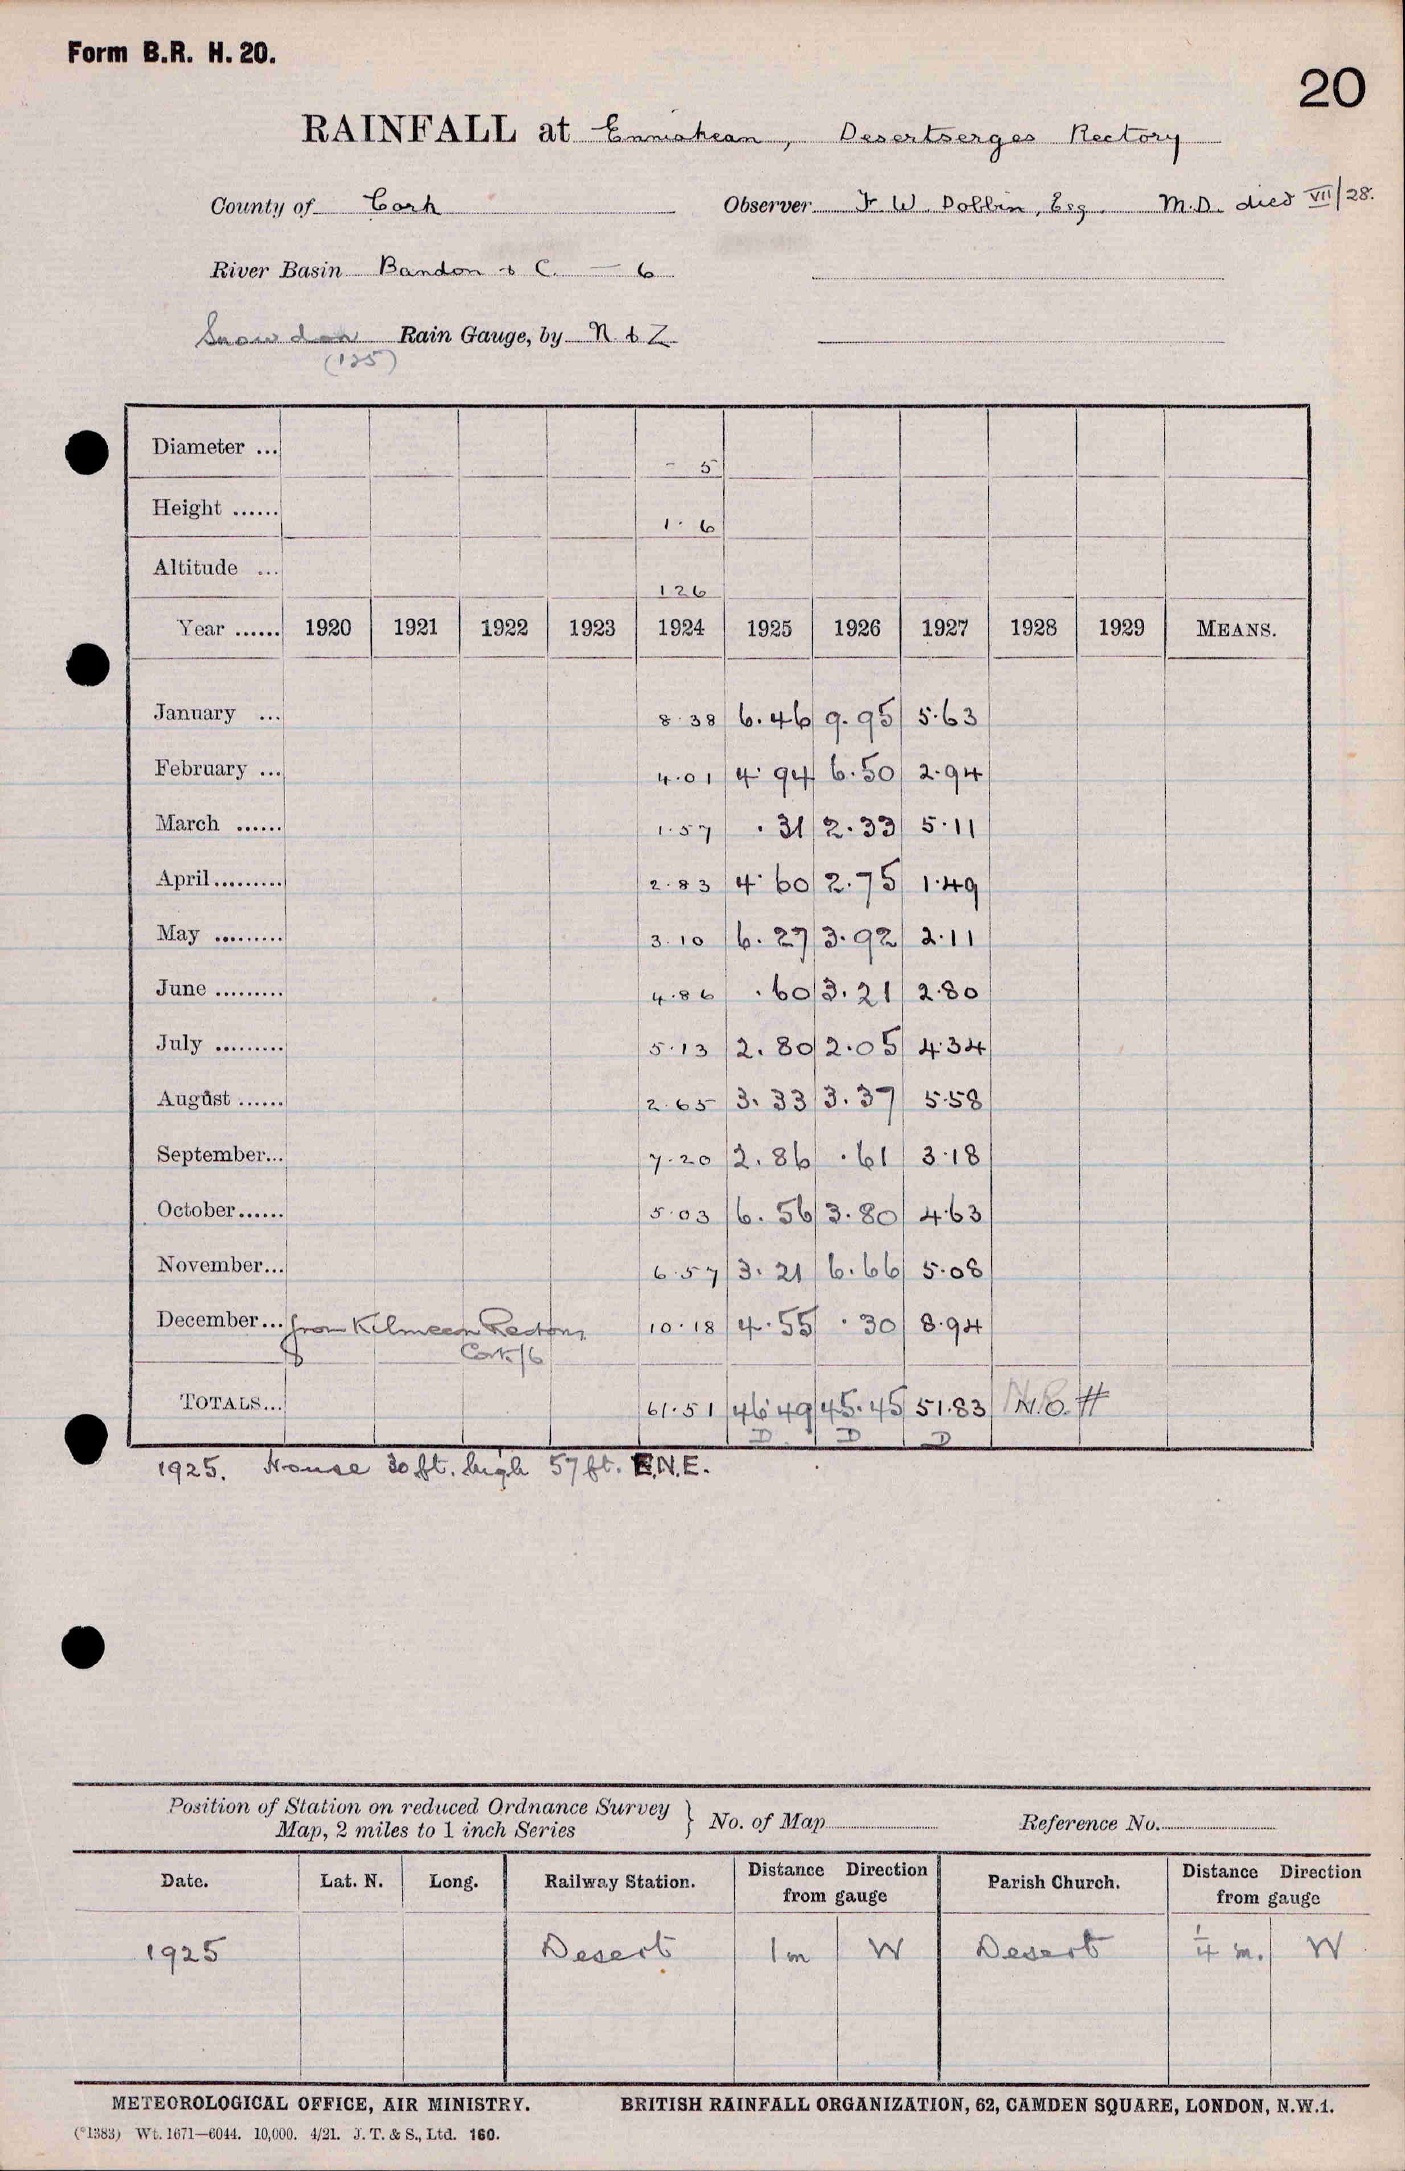 Form B.R. H. 20.
20
RAINFALL at Enniskean, Desertserges Rectory
County of Cork Observer F W Dobbin, Esq. M.D. died VII/28.
River Basin Bandon & C. — 6
Snowdon Rain Gauge, by N & Z
(125)
Diameter ... - 5
Height ...... 1 · 6
Altitude ... 126
Year ...... 1920 1921 1922 1923 1924 1925 1926 1927 1928 1929 MEANS.
January ... 8·38 6.46 9.95 5·63
February ... 4·01 4·94 6.50 2·94
March ...... 1·57 ·31 2.33 5·11
April ......... 2·83 4·60 2.75 1·49
May ......... 3·10 6.27 3.92 2·11
June ......... 4·86 ·60 3.21 2·80
July ......... 5·13 2.80 2.05 4·34
August ...... 2·65 3.33 3.37 5·58
September... 7·20 2.86 ·61 3·18
October...... 5·03 6.56 3.80 4·63
November... 6·57 3.21 6.66 5·08
December... from Kilmeen Rectory 10·18 4.55 ·30 8·94
Cork/6
TOTALS... 61·51 46·49 45.45 51·83 N.O. #
D D D
1925. House 30 ft. high 57 ft. E.N.E.
Position of Station on reduced Ordnance Survey
Map, 2 miles to 1 inch Series } No. of Map Reference No.
Date. Lat. N. Long. Railway Station. Distance Direction from gauge Parish Church. Distance Direction from gauge
1925 Desert 1 m W Desert 1/4 m. W
METEOROLOGICAL OFFICE, AIR MINISTRY. BRITISH RAINFALL ORGANIZATION, 62, CAMDEN SQUARE, LONDON, N.W.1.
(*1383) Wt. 1671—6044. 10,000. 4/21. J. T. & S., Ltd. 160.